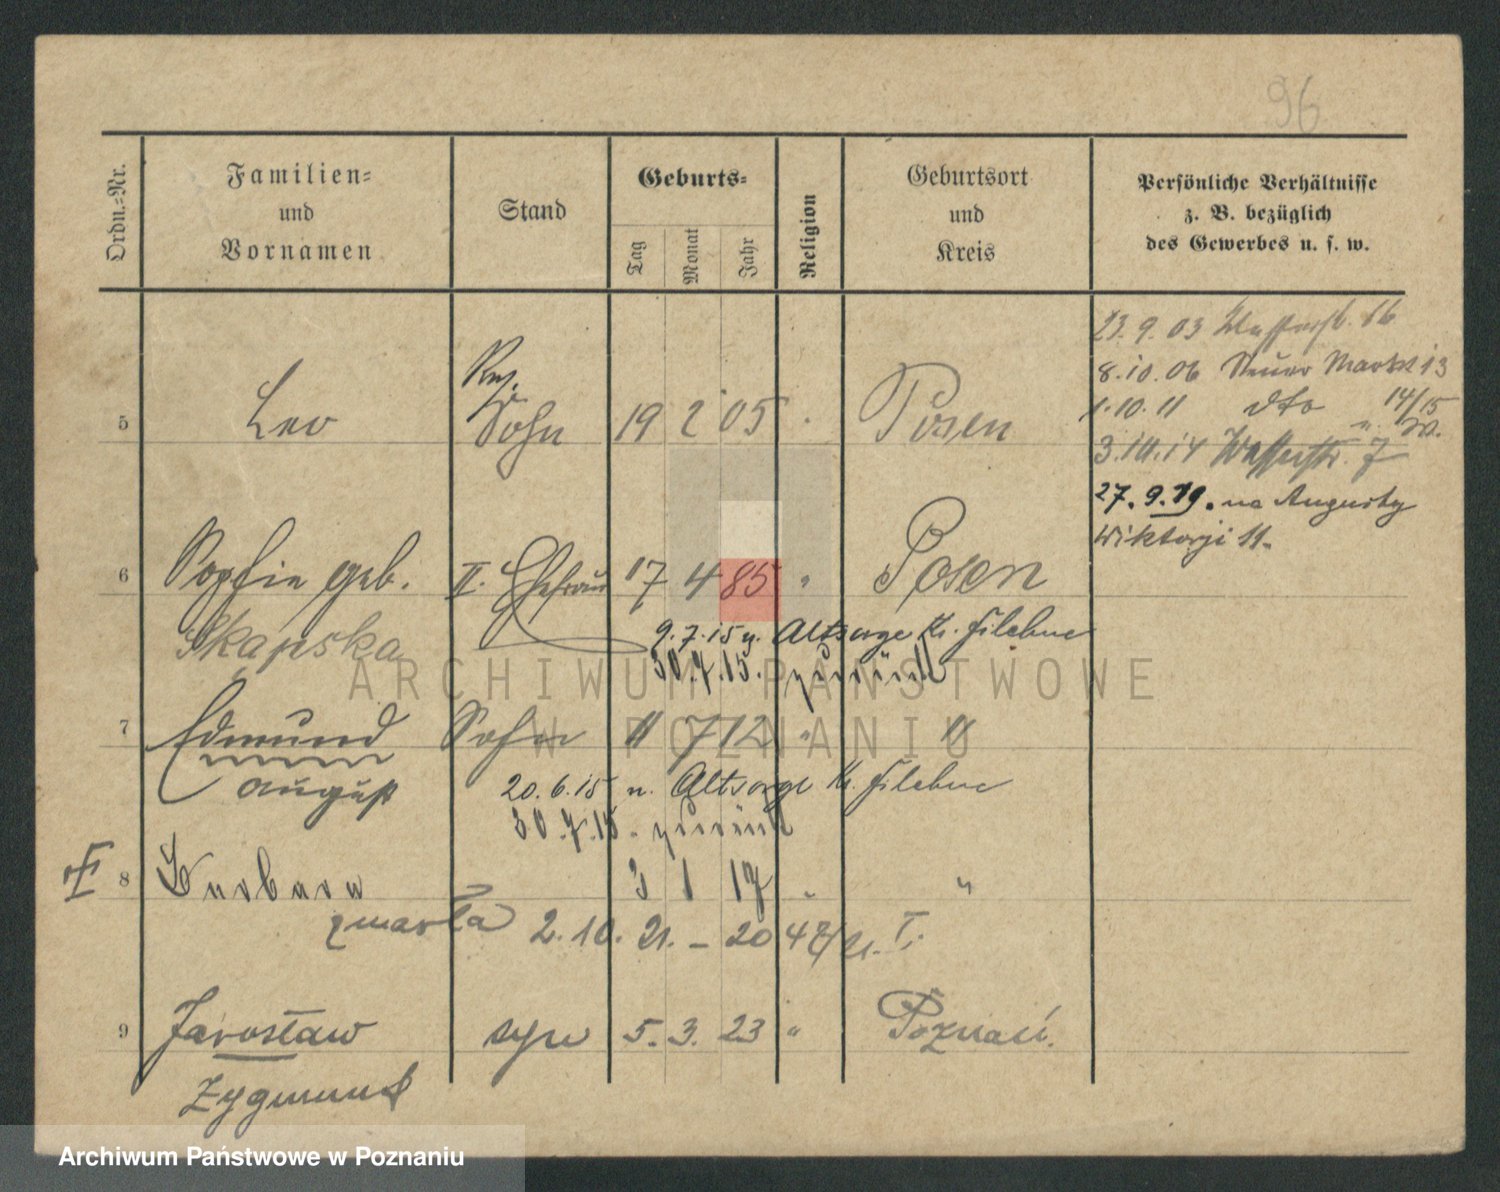 96
Ordn.-Nr.
Familien-
und
Vornamen
Stand
Geburts-
Tag
Monat
Jahr
Religion
Geburtsort
und
Kreis
Persönliche Verhältnisse
z. B. bezüglich
des Gewerbes u. s. w.
23. 9. 03 Wasserstr. 16
8. 10. 06 Neuer Markt 13
1. 10. 11 dto 14/15
3. 10. 14 Wasserstr. 7
27. 9. 19. na Augusty
Wiktorji 11.
5 Leo Sohn 19 2 05 Posen
6 Sophie geb. II. Ehefrau 17 4 85 " Posen
Skapska
9. 7. 15 n. Altsorge Kr. Filehne
30. 7. 15. zurück
7 Edmund Sohn 11 7 12 " "
August
20. 6. 15 n. Altsorge Kr. Filehne
30. 7. 15. zurück
8 Barbara 3 1 17 " "
zmarła 2. 10. 21. - 20
9 Jarosław syn 5. 3. 23 " Poznań.
Zygmunt
ARCHIWUM PAŃSTWOWE
W POZNANIU
Archiwum Państwowe w Poznaniu